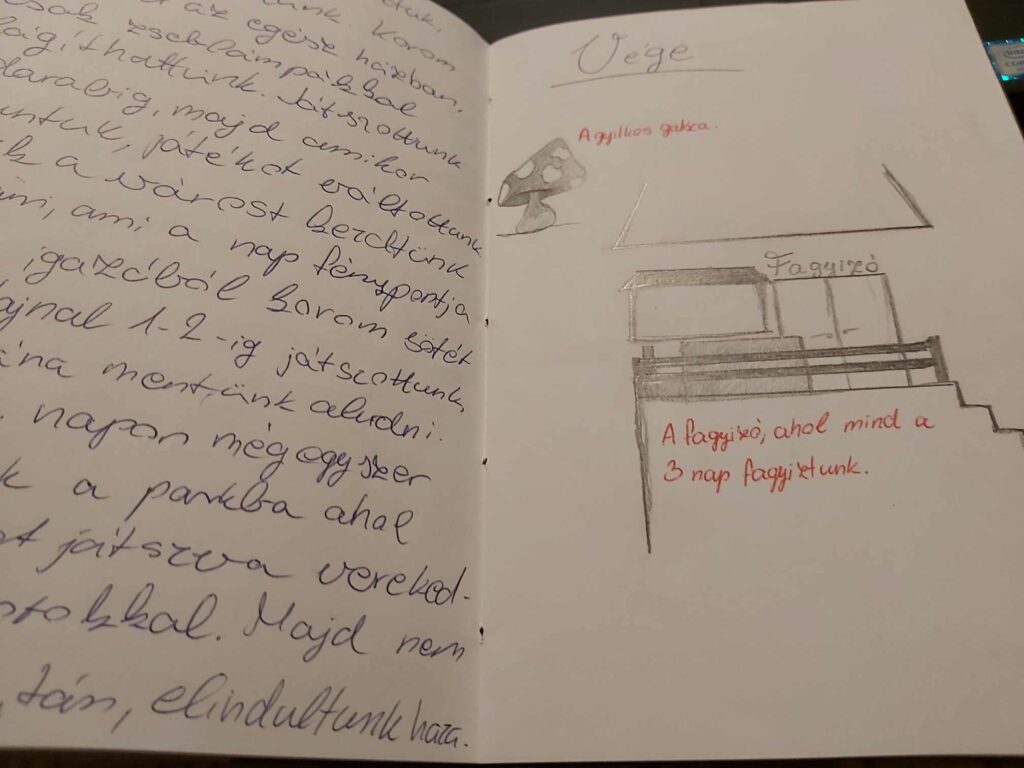 az egész házban,
csak zseblámpákkal
világíthattunk. Játszottunk
darabig, majd amikor
játékot váltottunk
a várost kezdtünk
ami a nap fénypontja
igazából korom sötét
hajnal 1-2-ig játszottunk,
mentünk aludni.
napon még egyszer
a parkba ahol
játszva vereked-
Majd nem
elindultunk haza.
Vége
A gyilkos gakka.
Fagyizó
A fagyizó, ahol mind a
3 nap fagyiztunk.